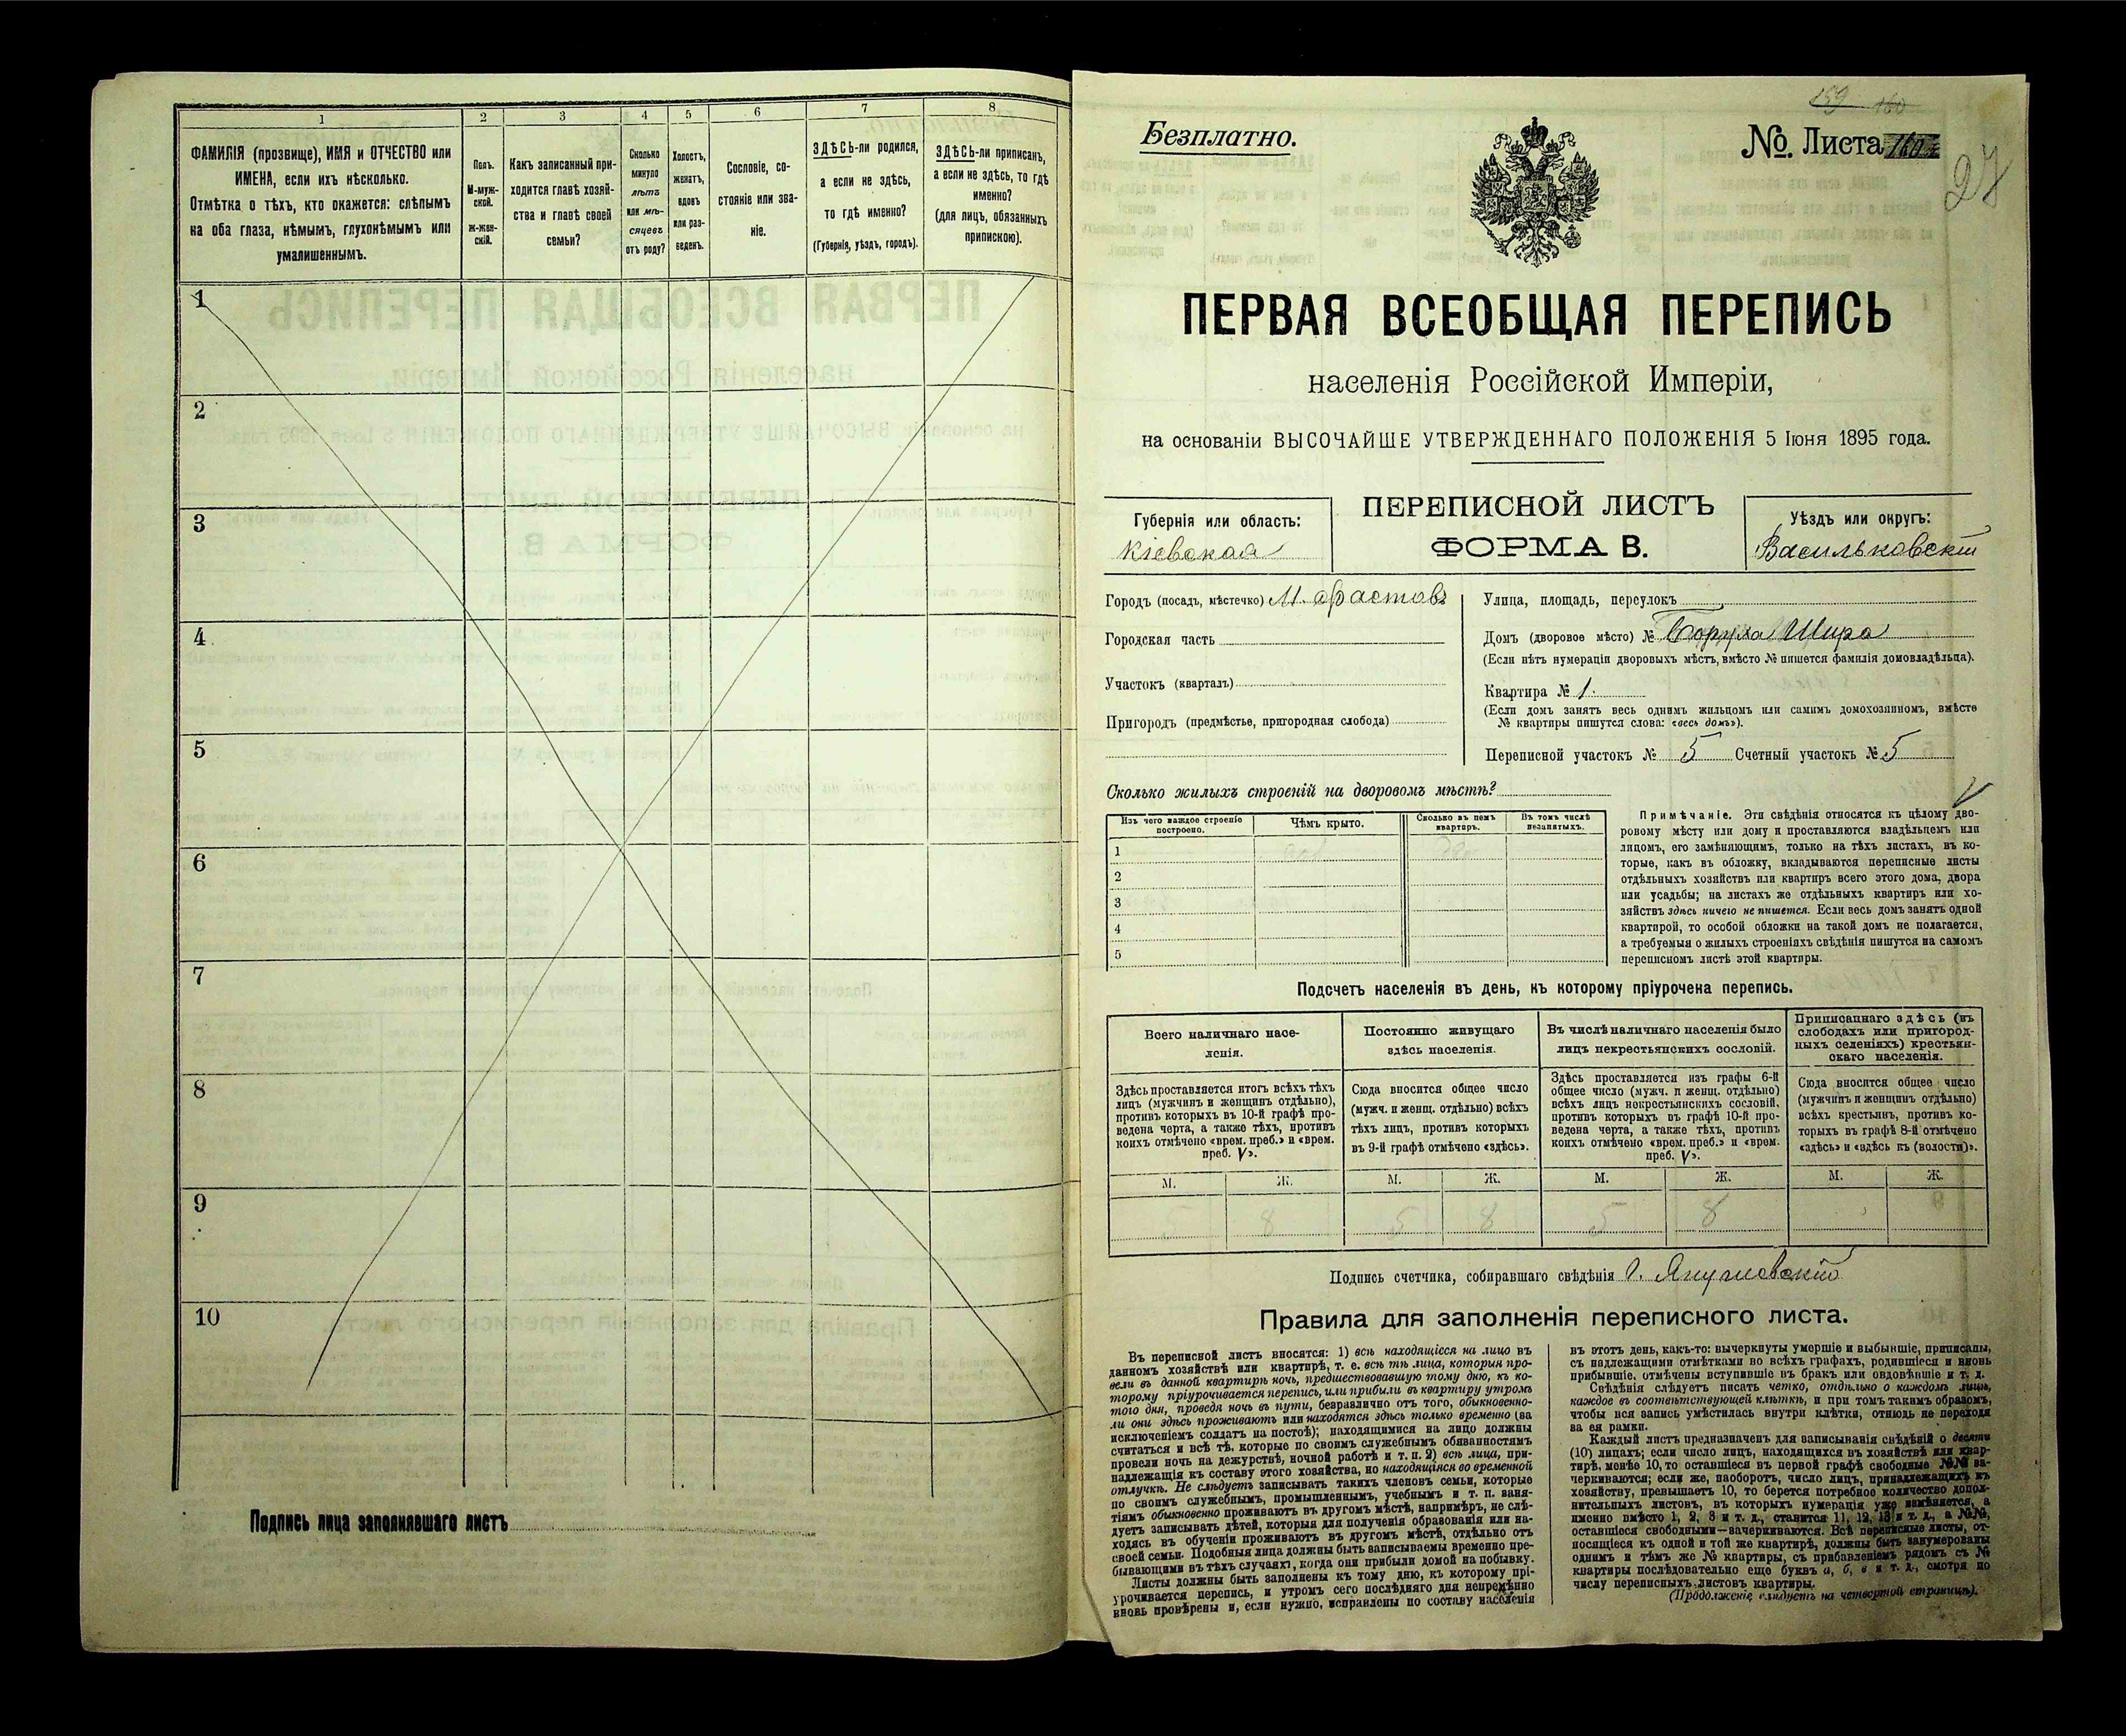 1
2
3
4
5
6
7
8
ФАМИЛІЯ (прозвище), ИМЯ и ОТЧЕСТВО или
ИМЕНА, если ихъ нѣсколько.
Отмѣтка о тѣхъ, кто окажется: слѣпымъ
на оба глаза, нѣмымъ, глухонѣмымъ или
умалишеннымъ.
Полъ.
М-муж-
ской.
Ж-жен-
скій.
Какъ записанный при-
ходится главѣ хозяй-
ства и главѣ своей
семьи?
Сколько
минуло
лѣтъ
или мѣ-
сяцевъ
отъ роду?
Холостъ,
женатъ,
вдовъ
или раз-
веденъ.
Сословіе, со-
стояніе или зва-
ніе.
ЗДѢСЬ-ли родился,
а если не здѣсь,
то гдѣ именно?
(Губернія, уѣздъ, городъ).
ЗДѢСЬ-ли приписанъ,
а если не здѣсь, то гдѣ
именно?
(для лицъ, обязанныхъ
припискою).
1
2
3
4
5
6
7
8
9
10
Подпись лица заполнявшаго листъ
159 160
Безплатно.
№. Листа 160
27
ПЕРВАЯ ВСЕОБЩАЯ ПЕРЕПИСЬ
населенія Россійской Имперіи,
на основаніи ВЫСОЧАЙШЕ УТВЕРЖДЕННАГО ПОЛОЖЕНІЯ 5 Іюня 1895 года.
Губернія или область:
Кіевская
ПЕРЕПИСНОЙ ЛИСТЪ
ФОРМА В.
Уѣздъ или округъ:
Васильковскій
Городъ (посадъ, мѣстечко) М. Фастовъ
Городская часть
Участокъ (кварталъ)
Пригородъ (предмѣстье, пригородная слобода)
Улица, площадь, переулокъ
Домъ (дворовое мѣсто) № Боруха Шира
(Если нѣтъ нумераціи дворовыхъ мѣстъ, вмѣсто № пишется фамилія домовладѣльца).
Квартира № 1.
(Если домъ занятъ весь однимъ жильцомъ или самимъ домохозяиномъ, вмѣсто
№ квартиры пишутся слова: «весь домъ»).
Переписной участокъ № 5 Счетный участокъ № 5
Сколько жилыхъ строеній на дворовомъ мѣстѣ?
Изъ чего каждое строеніе
построено.
Чѣмъ крыто.
Сколько въ немъ
квартиръ.
Въ томъ числѣ
незанятыхъ.
1
2
3
4
5
Примѣчаніе. Эти свѣдѣнія относятся къ цѣлому дво-
ровому мѣсту или дому и проставляются владѣльцемъ или
лицомъ, его замѣняющимъ, только на тѣхъ листахъ, въ ко-
торые, какъ въ обложку, вкладываются переписные листы
отдѣльныхъ хозяйствъ или квартиръ всего этого дома, двора
или усадьбы; на листахъ же отдѣльныхъ квартиръ или хо-
зяйствъ здѣсь ничего не пишется. Если весь домъ занятъ одной
квартирой, то особой обложки на такой домъ не полагается,
а требуемыя о жилыхъ строеніяхъ свѣдѣнія пишутся на самомъ
переписномъ листѣ этой квартиры.
Подсчетъ населенія въ день, къ которому пріурочена перепись.
Всего наличнаго насе-
ленія.
Здѣсь проставляется итогъ всѣхъ тѣхъ
лицъ (мужчинъ и женщинъ отдѣльно),
противъ которыхъ въ 10-й графѣ про-
ведена черта, а также тѣхъ, противъ
коихъ отмѣчено «врем. преб.» и «врем.
преб. V».
Постоянно живущаго
здѣсь населенія.
Сюда вносится общее число
(мужч. и женщ. отдѣльно) всѣхъ
тѣхъ лицъ, противъ которыхъ
въ 9-й графѣ отмѣчено «здѣсь».
Въ числѣ наличнаго населенія было
лицъ некрестьянскихъ сословій.
Здѣсь проставляется изъ графы 6-й
общее число (мужч. и женщ. отдѣльно)
всѣхъ лицъ некрестьянскихъ сословій,
противъ которыхъ въ графѣ 10-й про-
ведена черта, а также тѣхъ, противъ
коихъ отмѣчено «врем. преб.» и «врем.
преб. V».
Приписаннаго здѣсь (въ
слободахъ или пригород-
ныхъ селеніяхъ) крестьян-
скаго населенія.
Сюда вносится общее число
(мужчинъ и женщинъ отдѣльно)
всѣхъ крестьянъ, противъ ко-
торыхъ въ графѣ 8-й отмѣчено
«здѣсь» и «здѣсь къ (волости)».
М. Ж. М. Ж. М. Ж. М. Ж.
5 8 5 8 5 8
Подпись счетчика, собиравшаго свѣдѣнія
Правила для заполненія переписного листа.
Въ переписной листъ вносятся: 1) всѣ находящіеся на лицо въ
данномъ хозяйствѣ или квартирѣ, т. е. всѣ тѣ лица, которыя про-
вели въ данной квартирѣ ночь, предшествовавшую тому дню, къ ко-
торому пріурочивается перепись, или прибыли въ квартиру утромъ
того дня, проведя ночь въ пути, безразлично отъ того, обыкновенно-
ли они здѣсь проживаютъ или находятся здѣсь только временно (за
исключеніемъ солдатъ на постоѣ); находящимися на лицо должны
считаться и всѣ тѣ, которые по своимъ служебнымъ обязанностямъ
провели ночь на дежурствѣ, ночной работѣ и т. п. 2) всѣ лица, при-
надлежащія къ составу этого хозяйства, но находящіяся во временной
отлучкѣ. Не слѣдуетъ записывать такихъ членовъ семьи, которые
по своимъ служебнымъ, промышленнымъ, учебнымъ и т. п. заня-
тіямъ обыкновенно проживаютъ въ другомъ мѣстѣ, напримѣръ, не слѣ-
дуетъ записывать дѣтей, которыя для полученія образованія или на-
ходясь въ обученіи проживаютъ въ другомъ мѣстѣ, отдѣльно отъ
своей семьи. Подобныя лица должны быть записываемы временно пре-
бывающими въ тѣхъ случаяхъ, когда они прибыли домой на побывку.
Листы должны быть заполнены къ тому дню, къ которому прі-
урочивается перепись, и утромъ сего послѣдняго дня непремѣнно
вновь провѣрены и, если нужно, исправлены по составу населенія
въ этотъ день, какъ-то: вычеркнуты умершіе и выбывшіе, приписаны,
съ надлежащими отмѣтками во всѣхъ графахъ, родившіеся и вновь
прибывшіе, отмѣчены вступившіе въ бракъ или овдовѣвшіе и т. д.
Свѣдѣнія слѣдуетъ писать четко, отдѣльно о каждомъ лицѣ,
каждое въ соотвѣтствующей клѣткѣ, и при томъ такимъ образомъ,
чтобы вся запись умѣстилась внутри клѣтки, отнюдь не переходя
за ея рамки.
Каждый листъ предназначенъ для записыванія свѣдѣній о десяти
(10) лицахъ; если число лицъ, находящихся въ хозяйствѣ или квар-
тирѣ, менѣе 10, то оставшіеся въ первой графѣ свободные №№ за-
черкиваются; если же, наоборотъ, число лицъ, принадлежащихъ къ
хозяйству, превышаетъ 10, то берется потребное количество допол-
нительныхъ листовъ, въ которыхъ нумерація уже измѣняется, а
именно вмѣсто 1, 2, 3 и т. д., ставится 11, 12, 13 и т. д., а №№,
оставшіеся свободными—зачеркиваются. Всѣ переписные листы, от-
носящіеся къ одной и той же квартирѣ, должны быть занумерованы
однимъ и тѣмъ же № квартиры, съ прибавленіемъ рядомъ съ №
квартиры послѣдовательно еще буквъ а, б, в и т. д., смотря по
числу переписныхъ листовъ квартиры.
(Продолженіе слѣдуетъ на четвертой страницѣ).